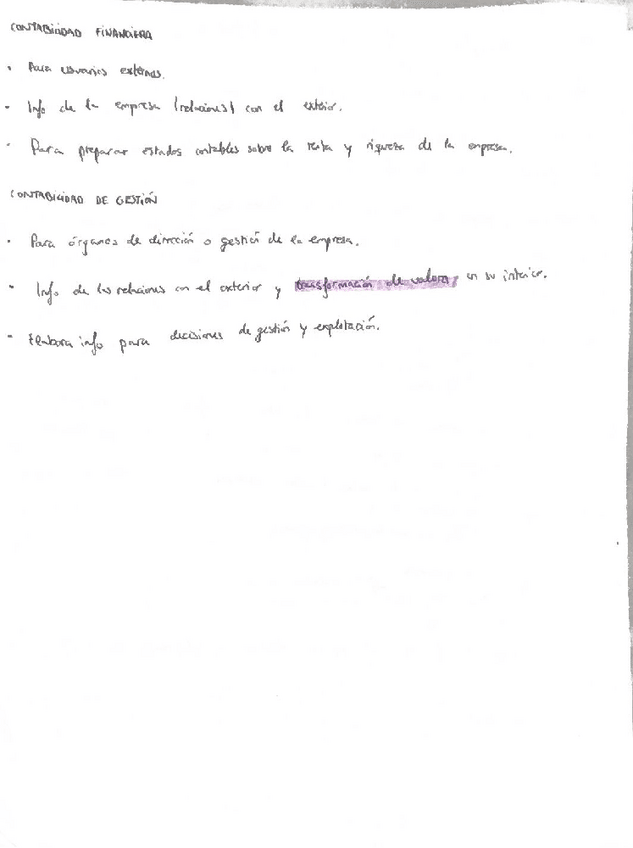 CONTABILIDAD FINANCIERA
· Para usuarios externos.
· Info de la empresa (relaciones) con el exterior.
· Para preparar estados contables sobre la renta y riqueza de la empresa.
CONTABILIDAD DE GESTIÓN
· Para órganos de dirección o gestión de la empresa.
· Info de las relaciones con el exterior y transformación de valores en su interior.
· Elabora info para decisiones de gestión y explotación.